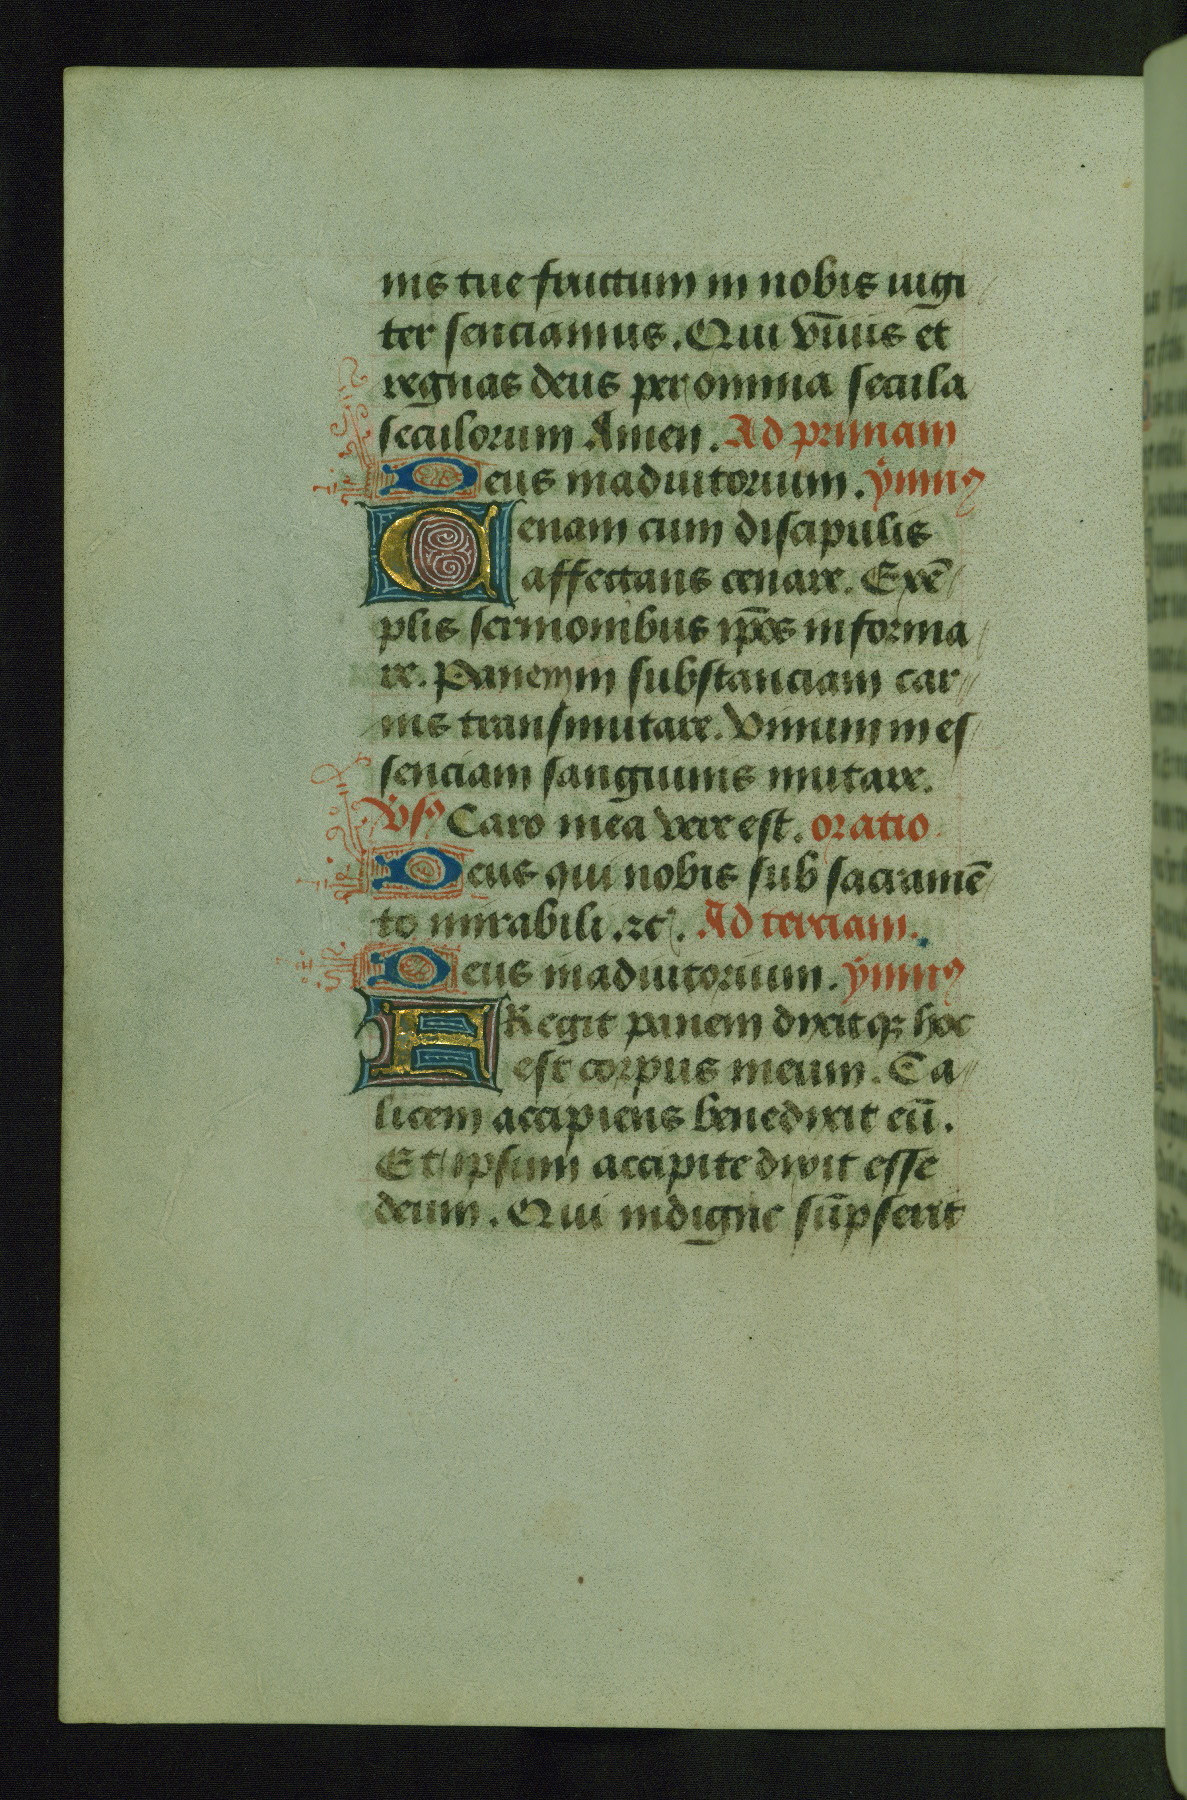 nis tue fructum in nobis iugi
ter senciamus. Qui viuis et
regnas deus per omnia secula
seculorum Amen. Ad primam
Deus in adiutorium. ymnꝰ
Cenam cum discipulis
affectans cenare. Exē
plis sermonibus ip̄os informa
re. Panem in substanciam car
nis transmutare. Vinum in es
senciam sanguinis mutare.
Vsꝰ Caro mea vere est. oratio
Deus qui nobis sub sacramē
to mirabili. ⁊c̃. Ad terciam.
Deus in adiutorium. ymnꝰ
FRegit panem dixitqꝫ hoc
est corpus meum. Ca
licem accipiens benedixit eū.
Et ipsum accipite dixit esse
deum. Qui indigne sūpserit